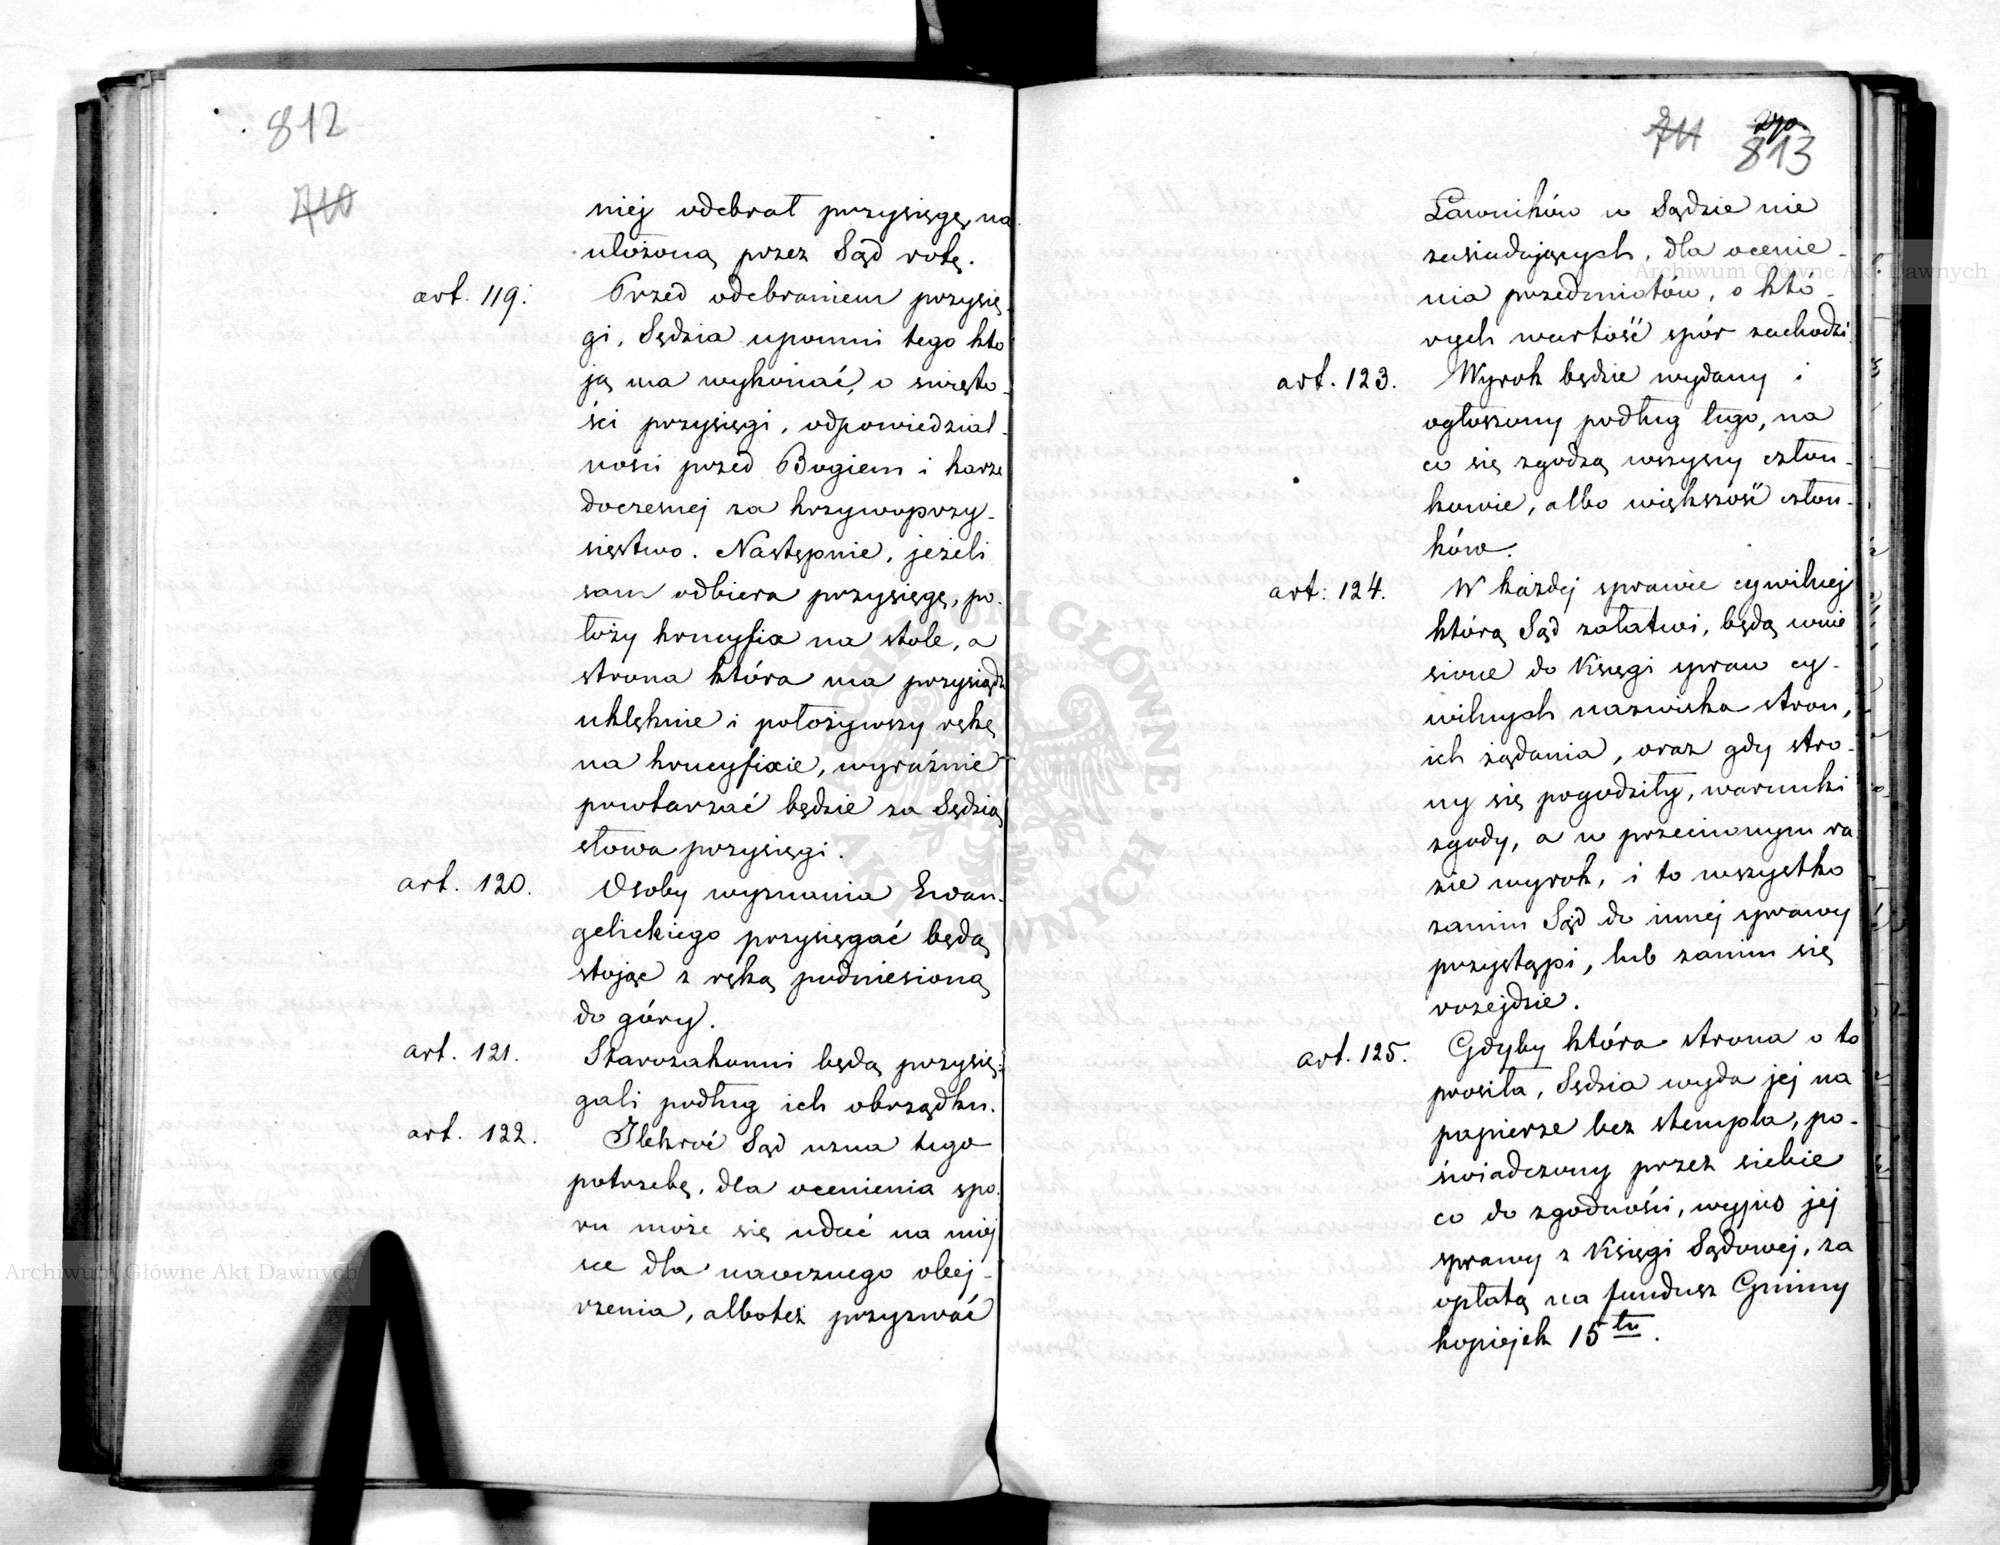 812
710
niej odebrał przysięgę, na
ułożoną przez Sąd rotę.
art. 119. Przed odebraniem przysię-
gi, Sędzia upomni tego kto
ją ma wykonać, o święto-
ści przysięgi, odpowiedzial-
ności przed Bogiem i karze
doczesnej za krzywoprzy-
sięstwo. Następnie, jeżeli
sam odbiera przysięgę, po-
łoży krucyfix na stole, a
strona która ma przysiądz
uklęknie i położywszy rękę
na krucyfixie, wyraźnie
powtarzać będzie za Sędzią
słowa przysięgi.
art. 120. Osoby wyznania Ewan-
gelickiego przysięgać będą
stojąc z ręką podniesioną
do góry.
art. 121. Starozakonni będą przysię-
gali podług ich obrządku.
art. 122. Ilekroć Sąd uzna tego
potrzebę, dla ocenienia spo-
ru może się udać na miej
sce dla naocznego obej-
rzenia, alboteż przyzwać
711 270
813
Ławników w Sądzie nie
zasiadających, dla ocenie-
nia przedmiotów, o któ-
rych wartość spór zachodzi.
art. 123. Wyrok będzie wydany i
ogłoszony podług tego, na
co się zgodzą wszyscy człon-
kowie, albo większość człon-
ków.
art: 124. W każdej sprawie cywilnej
którą Sąd załatwi, będą wnie
sione do Księgi spraw cy-
wilnych nazwiska stron,
ich żądania, oraz gdy stro-
ny się pogodziły, warunki
zgody, a w przeciwnym ra
zie wyrok, i to wszystko
zanim Sąd do innej sprawy
przystąpi, lub zanim się
rozejdzie.
art. 125. Gdyby która strona o to
prosiła, Sędzia wyda jej na
papierze bez stempla, po-
świadczony przez siebie
co do zgodności, wypis jej
sprawy z Księgi Sądowej, za
opłatą na fundusz Gminy
kopiejek 15tu.
Archiwum Główne Akt Dawnych
Archiwum Główne Akt Dawnych
ARCHIWUM GŁÓWNE AKT DAWNYCH